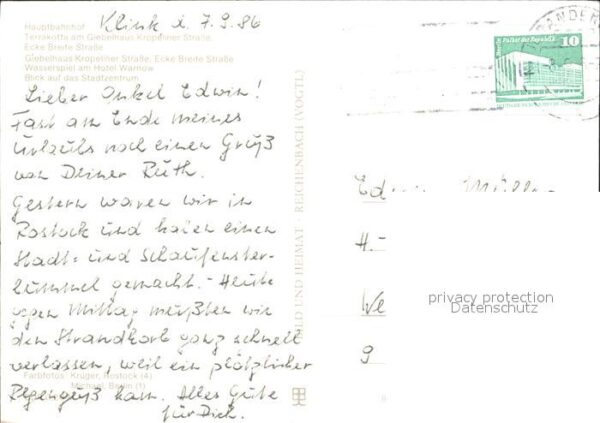 Hauptbahnhof
Klink d. 7.9.86
Terrakotta am Giebelhaus Kröpeliner Straße,
Ecke Breite Straße
Giebelhaus Kröpeliner Straße, Ecke Breite Straße
Wasserspiel am Hotel Warnow
Blick auf das Stadtzentrum
Lieber Onkel Edwin!
Fast am Ende meines
Urlaubs noch einen Gruß
von Deiner Ruth.
Gestern waren wir in
Rostock und haben einen
Stadt- und Schaufenster-
bummel gemacht. - Heute
gegen Mittag mußten wir
den Strandkorb ganz schnell
verlassen, weil ein plötzlicher
Regenguß kam. Alles Gute
für Dich.
Farbfotos: Krüger, Rostock (4)
Michael, Berlin (1)
BILD UND HEIMAT · REICHENBACH (VOGTL)
10
Palast der Republik
H.-
We
9
privacy protection
Datenschutz